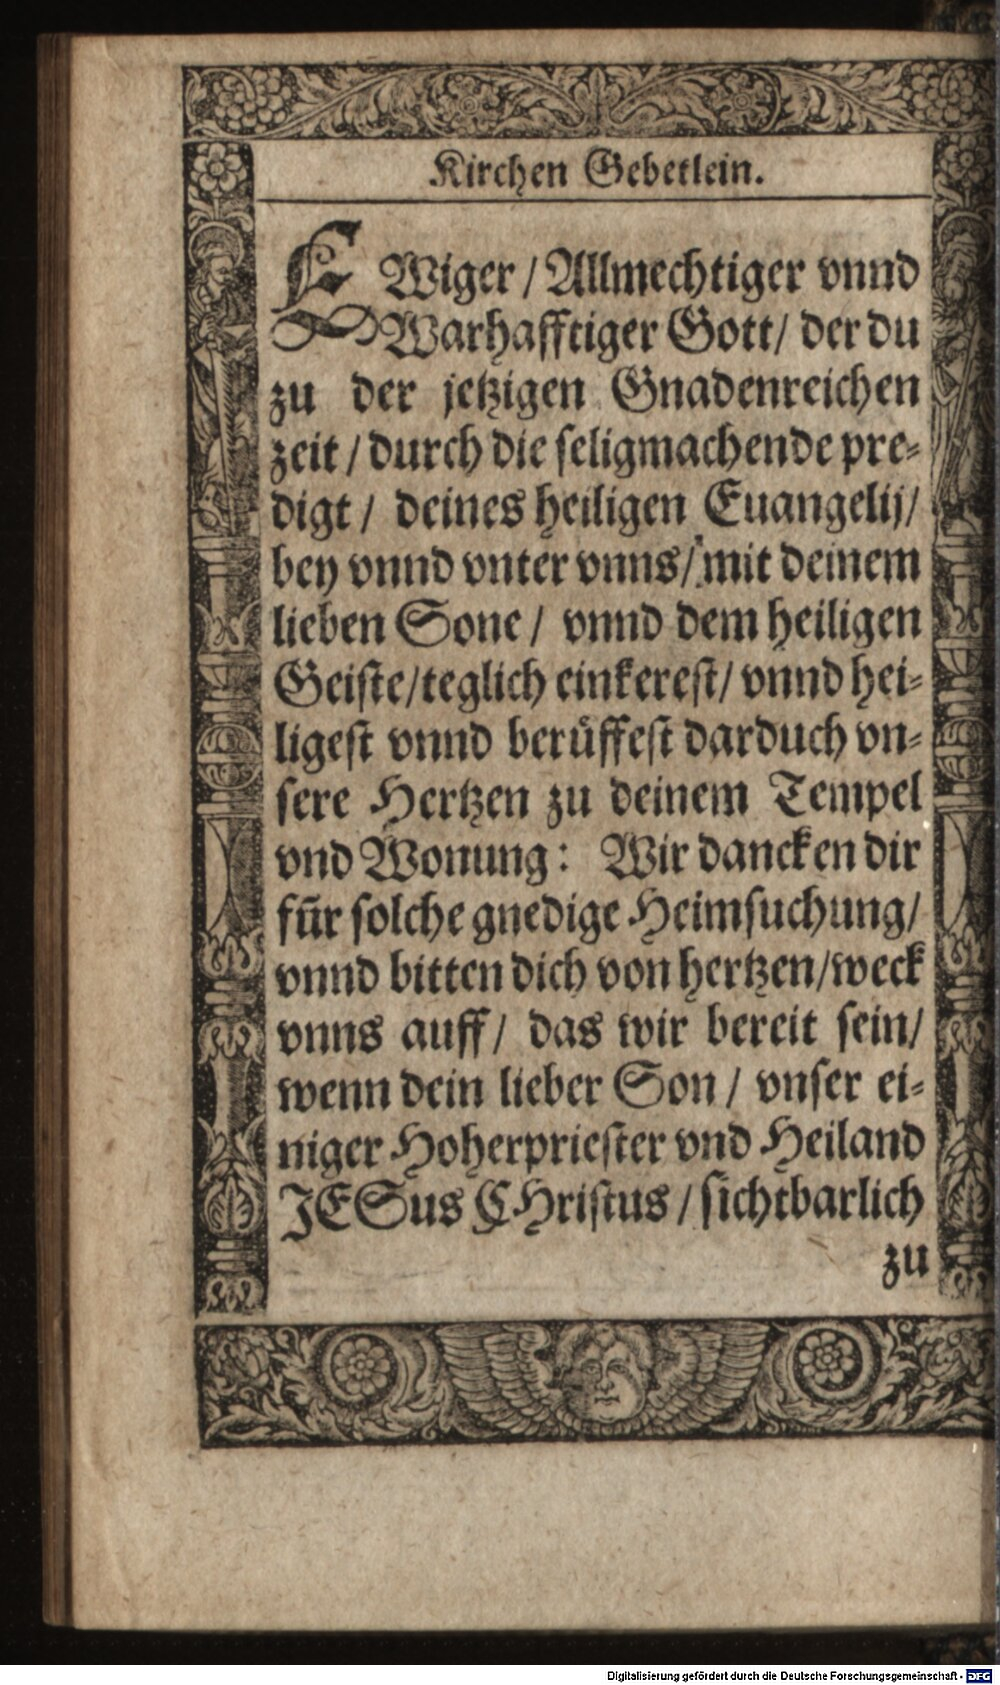 Kirchen Gebetlein.
EWiger / Allmechtiger vnnd
Warhafftiger Gott / der du
zu der jetzigen Gnadenreichen
zeit / durch die seligmachende pre-
digt / deines heiligen Euangelij /
bey vnnd vnter vnns / mit deinem
lieben Sone / vnnd dem heiligen
Geiste / teglich einkerest / vnnd hei-
ligest vnnd berůffest darduch vn-
sere Hertzen zu deinem Tempel
vnd Wonung: Wir dancken dir
für solche gnedige Heimsuchung /
vnnd bitten dich von hertzen / weck
vnns auff / das wir bereit sein /
wenn dein lieber Son / vnser ei-
niger Hoherpriester vnd Heiland
JESus CHristus / sichtbarlich
zu
Digitalisierung gefördert durch die Deutsche Forschungsgemeinschaft - DFG